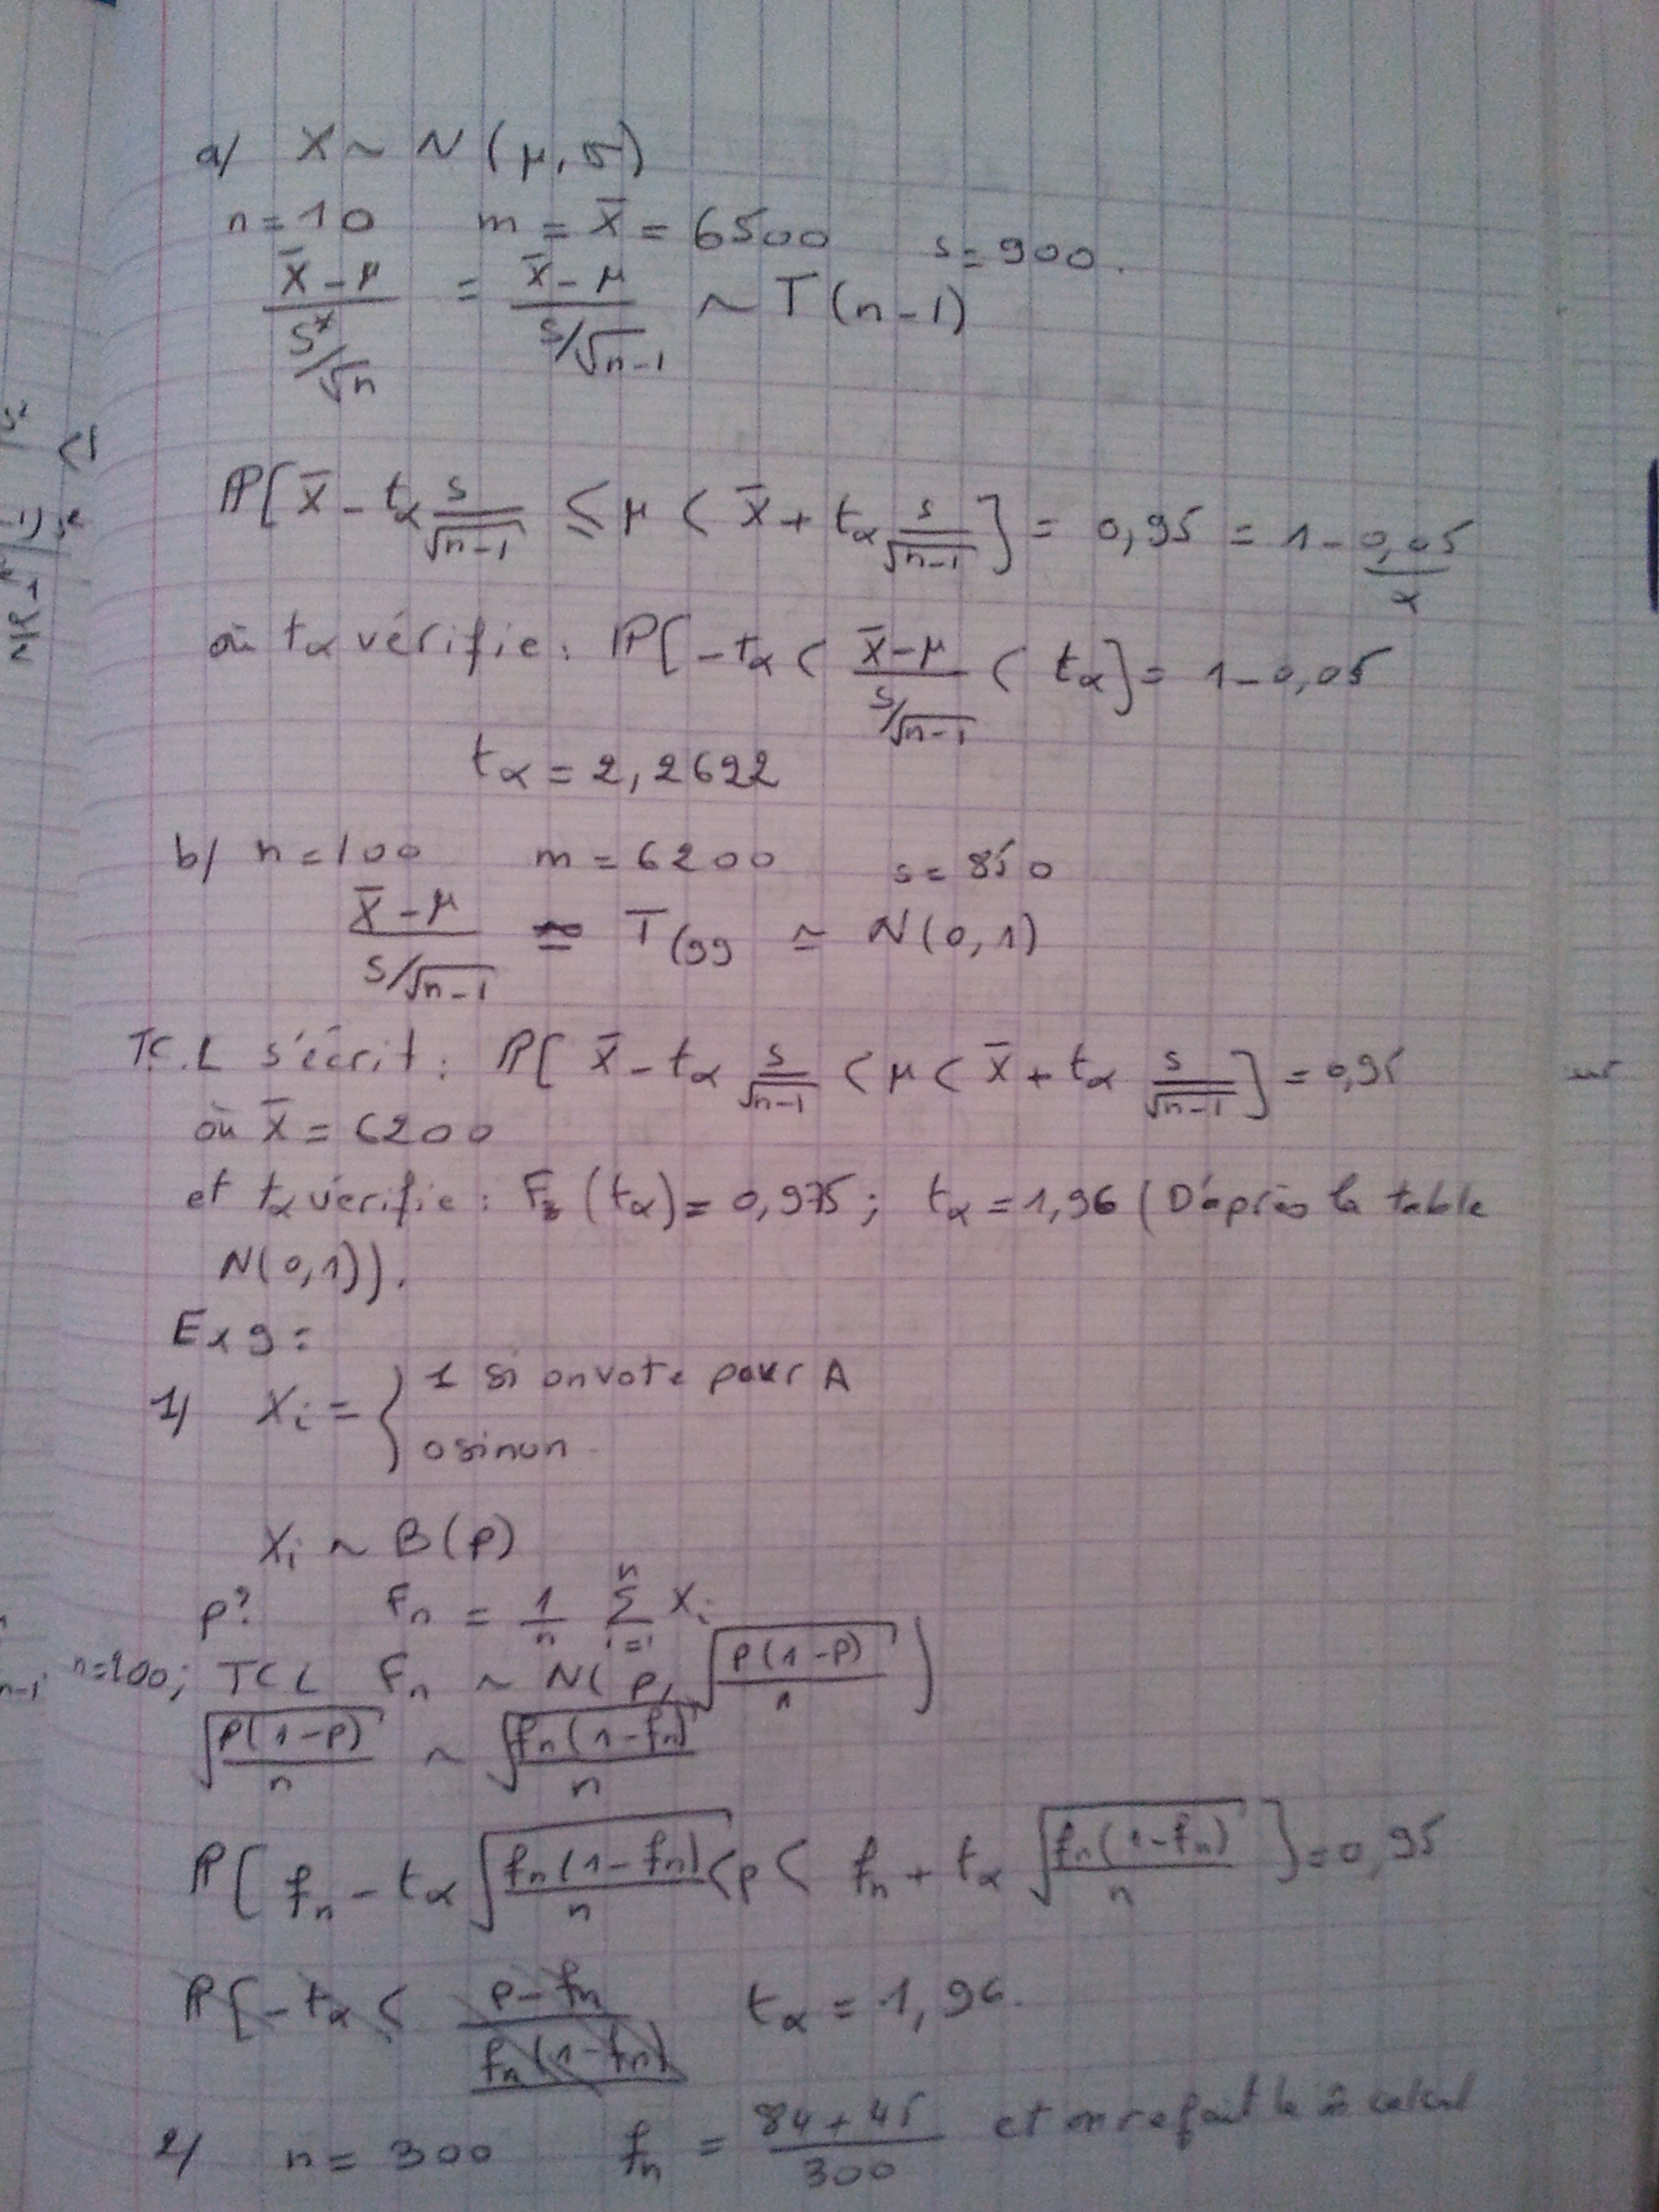 a/ X ~ N(μ, σ)
n = 10 m = X̄ = 6500 s = 900.
(X̄ - μ)/(S*/√n) = (X̄ - μ)/(S/√(n-1)) ~ T(n-1)
ℙ[X̄ - tα s/√(n-1) ≤ μ < X̄ + tα s/√(n-1)] = 0,95 = 1 - 0,05
α
où tα vérifie : ℙ[-tα < (X̄ - μ)/(S/√(n-1)) < tα] = 1 - 0,05
tα = 2,2622
b/ n = 100 m = 6200 s = 850
(X̄ - μ)/(S/√(n-1)) ≃ T(99 ≃ N(0,1)
T.C.L s'écrit : ℙ[X̄ - tα s/√(n-1) < μ < X̄ + tα s/√(n-1)] = 0,95
où X̄ = 6200
et tα vérifie : F (tα) = 0,975 ; tα = 1,96 (D'après la table
N(0,1)).
Ex 9 :
1/ Xi = { 1 si on vote pour A
0 sinon
Xi ~ B(p)
p? Fn = 1/n Σ_{i=1}^{n} Xi
n=100; TCL Fn ~ N(p, √(p(1-p)/n))
√(p(1-p)/n) ~ √(fn(1-fn)/n)
ℙ[fn - tα √(fn(1-fn)/n) < p < fn + tα √(fn(1-fn)/n)] = 0,95
ℙ[-tα < (p - fn)/(fn(1-fn)) tα = 1,96.
2/ n = 300 fn = (84 + 45)/300 et on refait le m̂ calcul